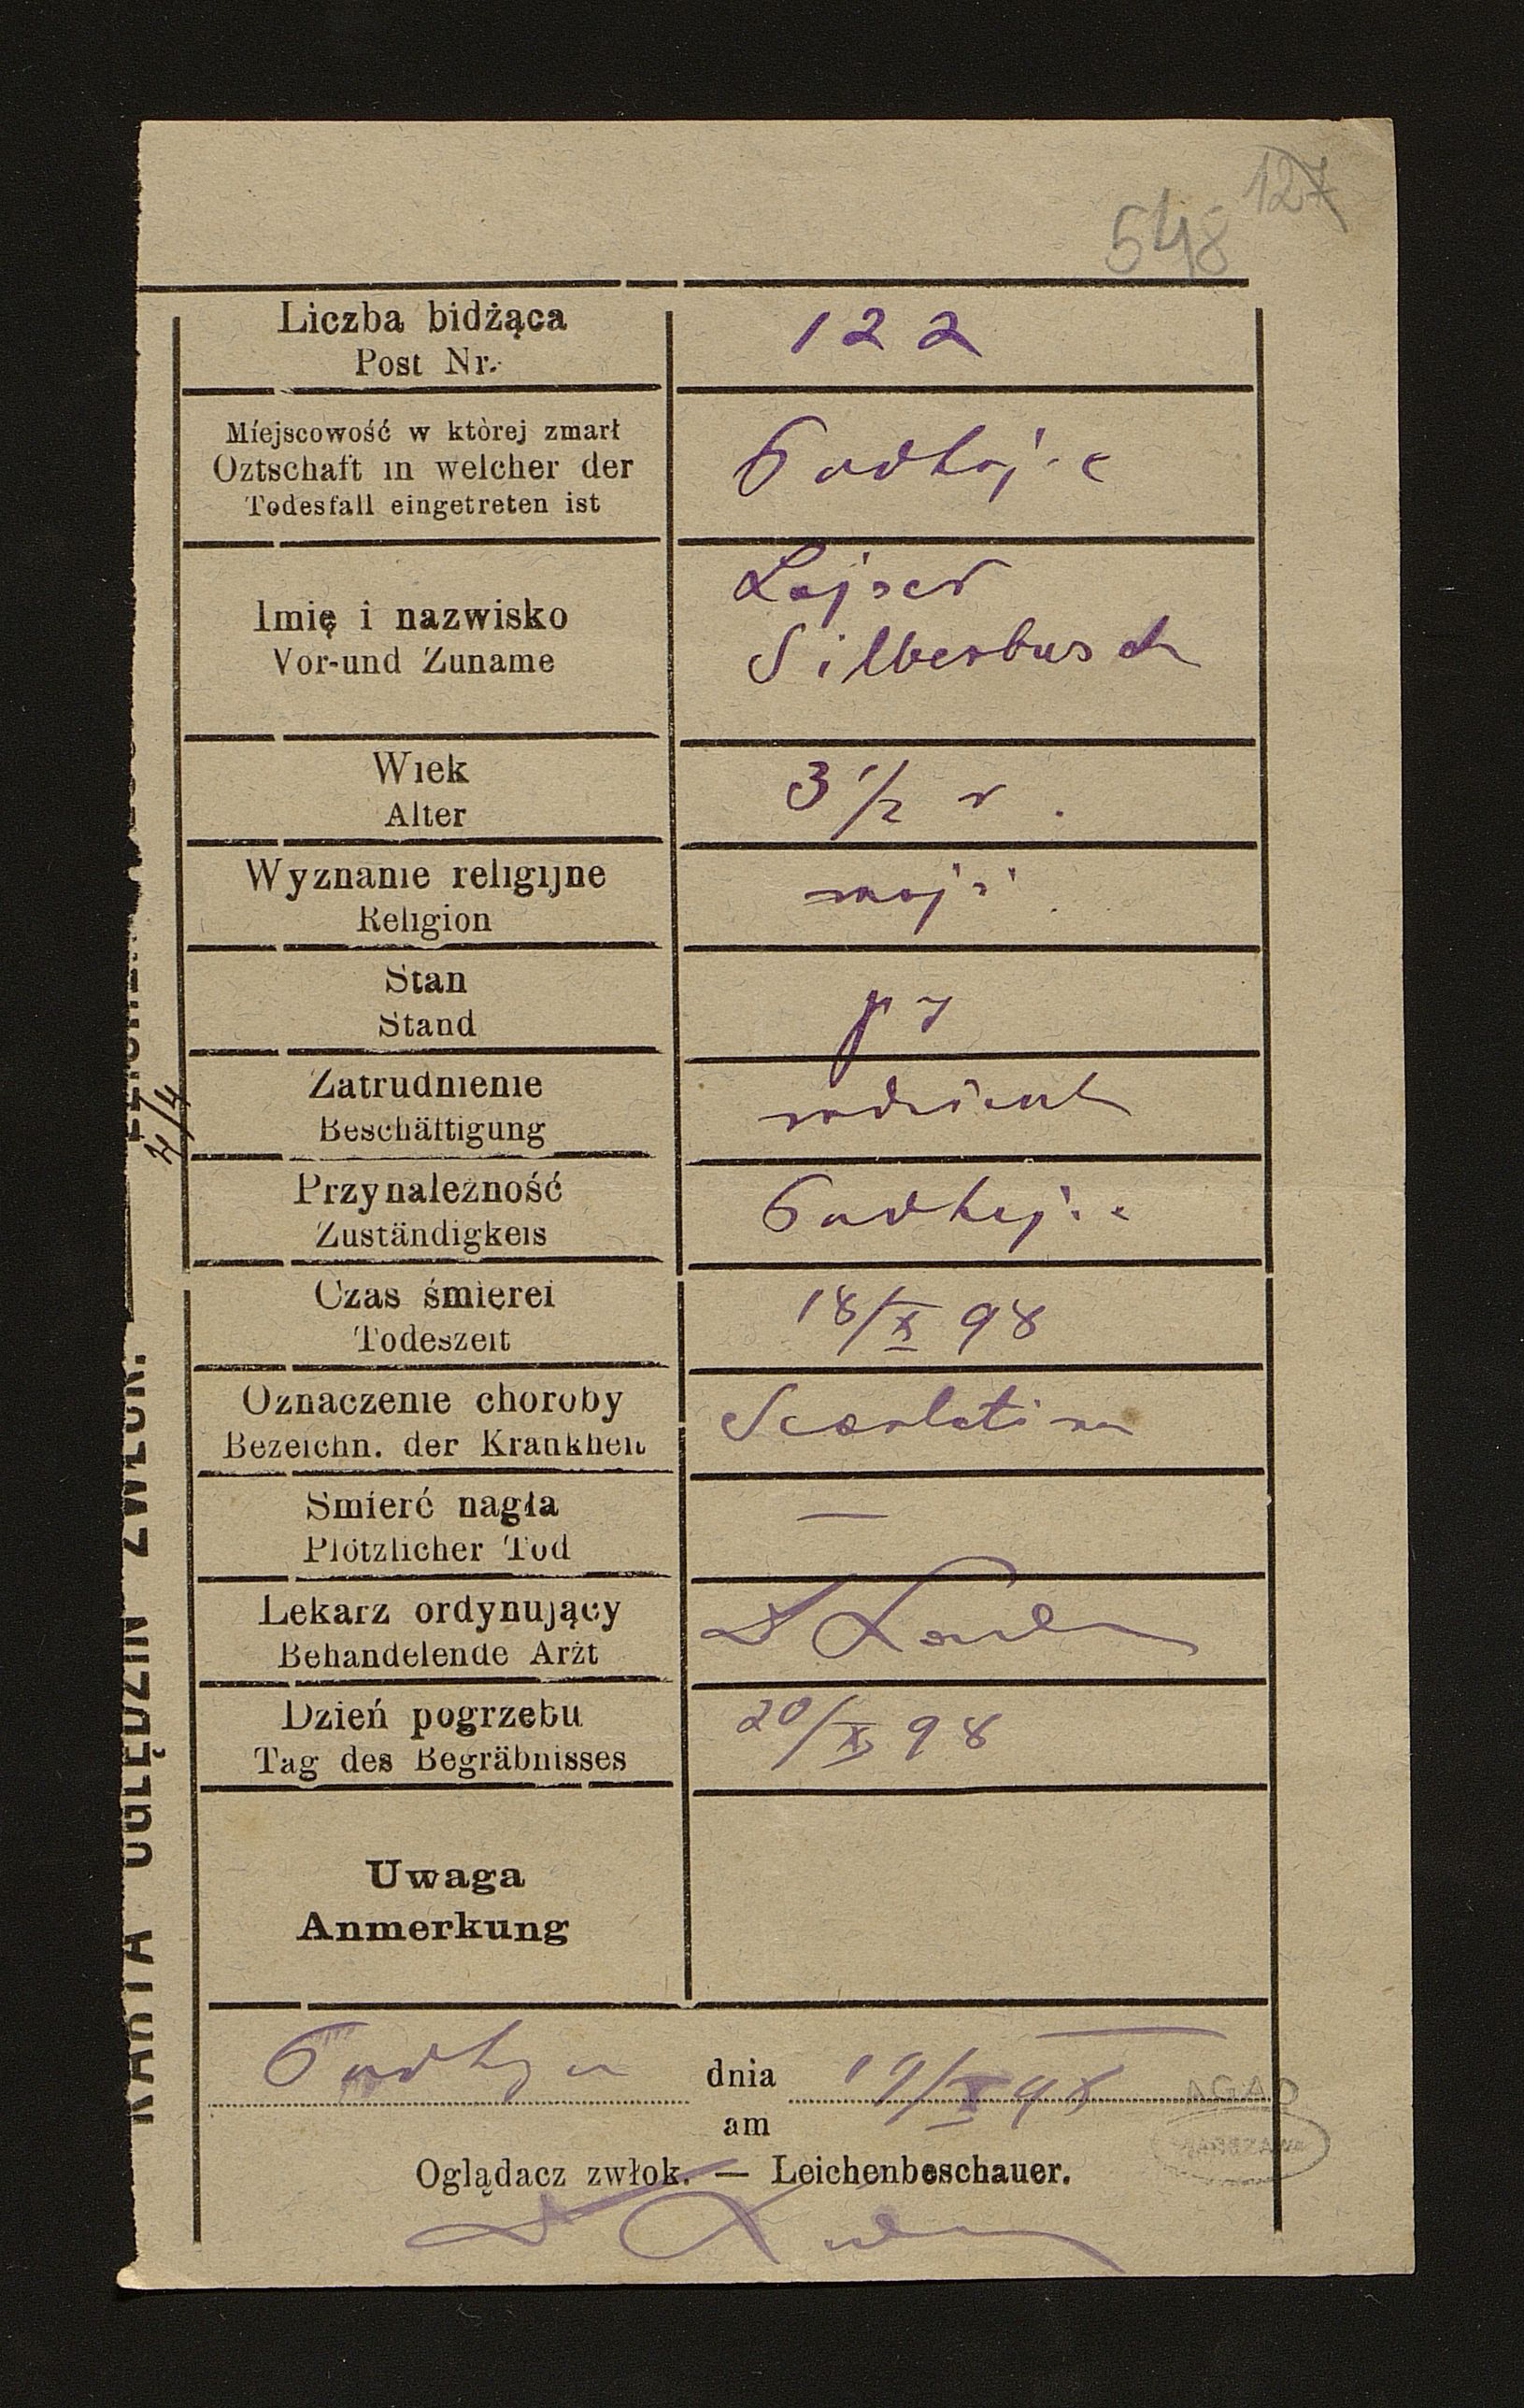 127
548
Liczba bidżąca
Post Nr.
122
Miejscowość w której zmarł
Oztschaft in welcher der
Todesfall eingetreten ist
Podhajce
Imię i nazwisko
Vor-und Zuname
Lajser
Silberbusch
Wiek
Alter
3 1/2 r.
Wyznanie religijne
Religion
mojż
Stan
Stand
Zatrudnienie
Beschäftigung
Przynależność
Zuständigkeis
Podhajce
Czas śmierei
Todeszeit
18/X 98
Oznaczenie choroby
Bezeichn. der Krankheit
Scarlatina
Smierć nagła
Plötzlicher Tod
—
Lekarz ordynujący
Behandelende Arżt
Dzień pogrzebu
Tag des Begräbnisses
20/X 98
Uwaga
Anmerkung
Podhajce dnia 19/X 98
am
Oglądacz zwłok. — Leichenbeschauer.
AGAD
WARSZAWA
KARTA OGLĘDZIN ZWŁOK.
4/4